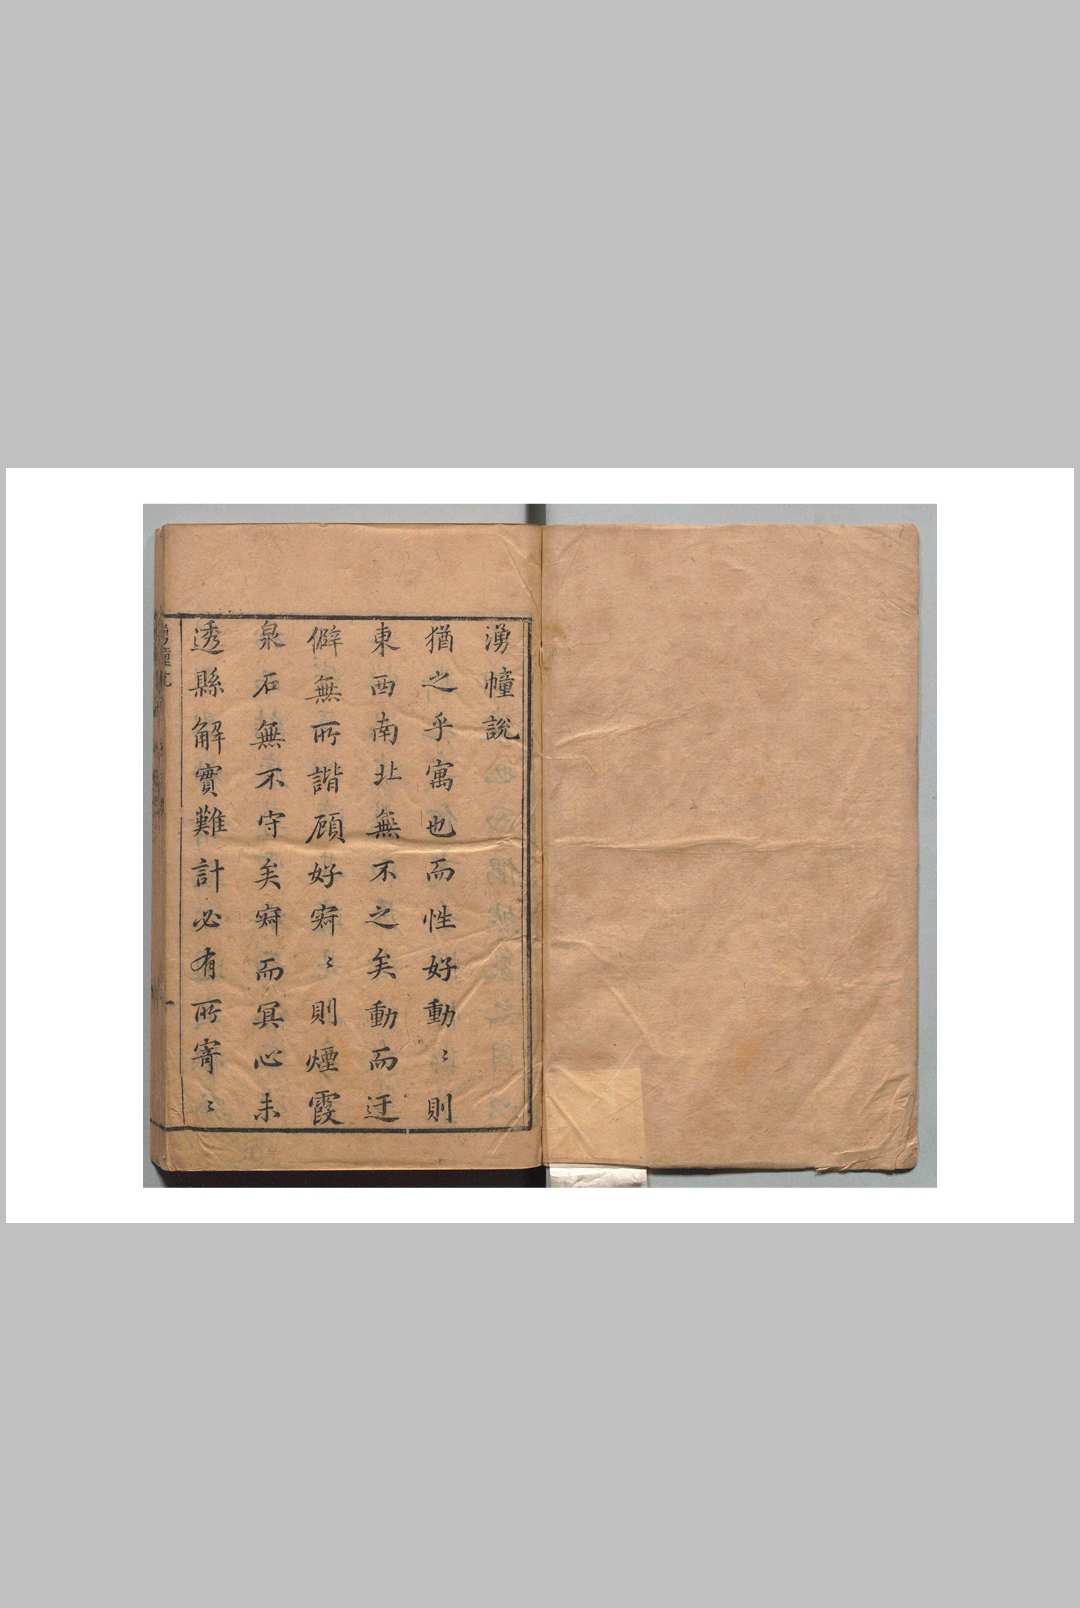 湧幢說
猶之乎寓也而性好動〻則
東西南北無不之矣動而迂
僻無所諧顧好窮〻則煙霞
泉石無不守矣窮而冥心未
透縣解實難計必有所寄〻